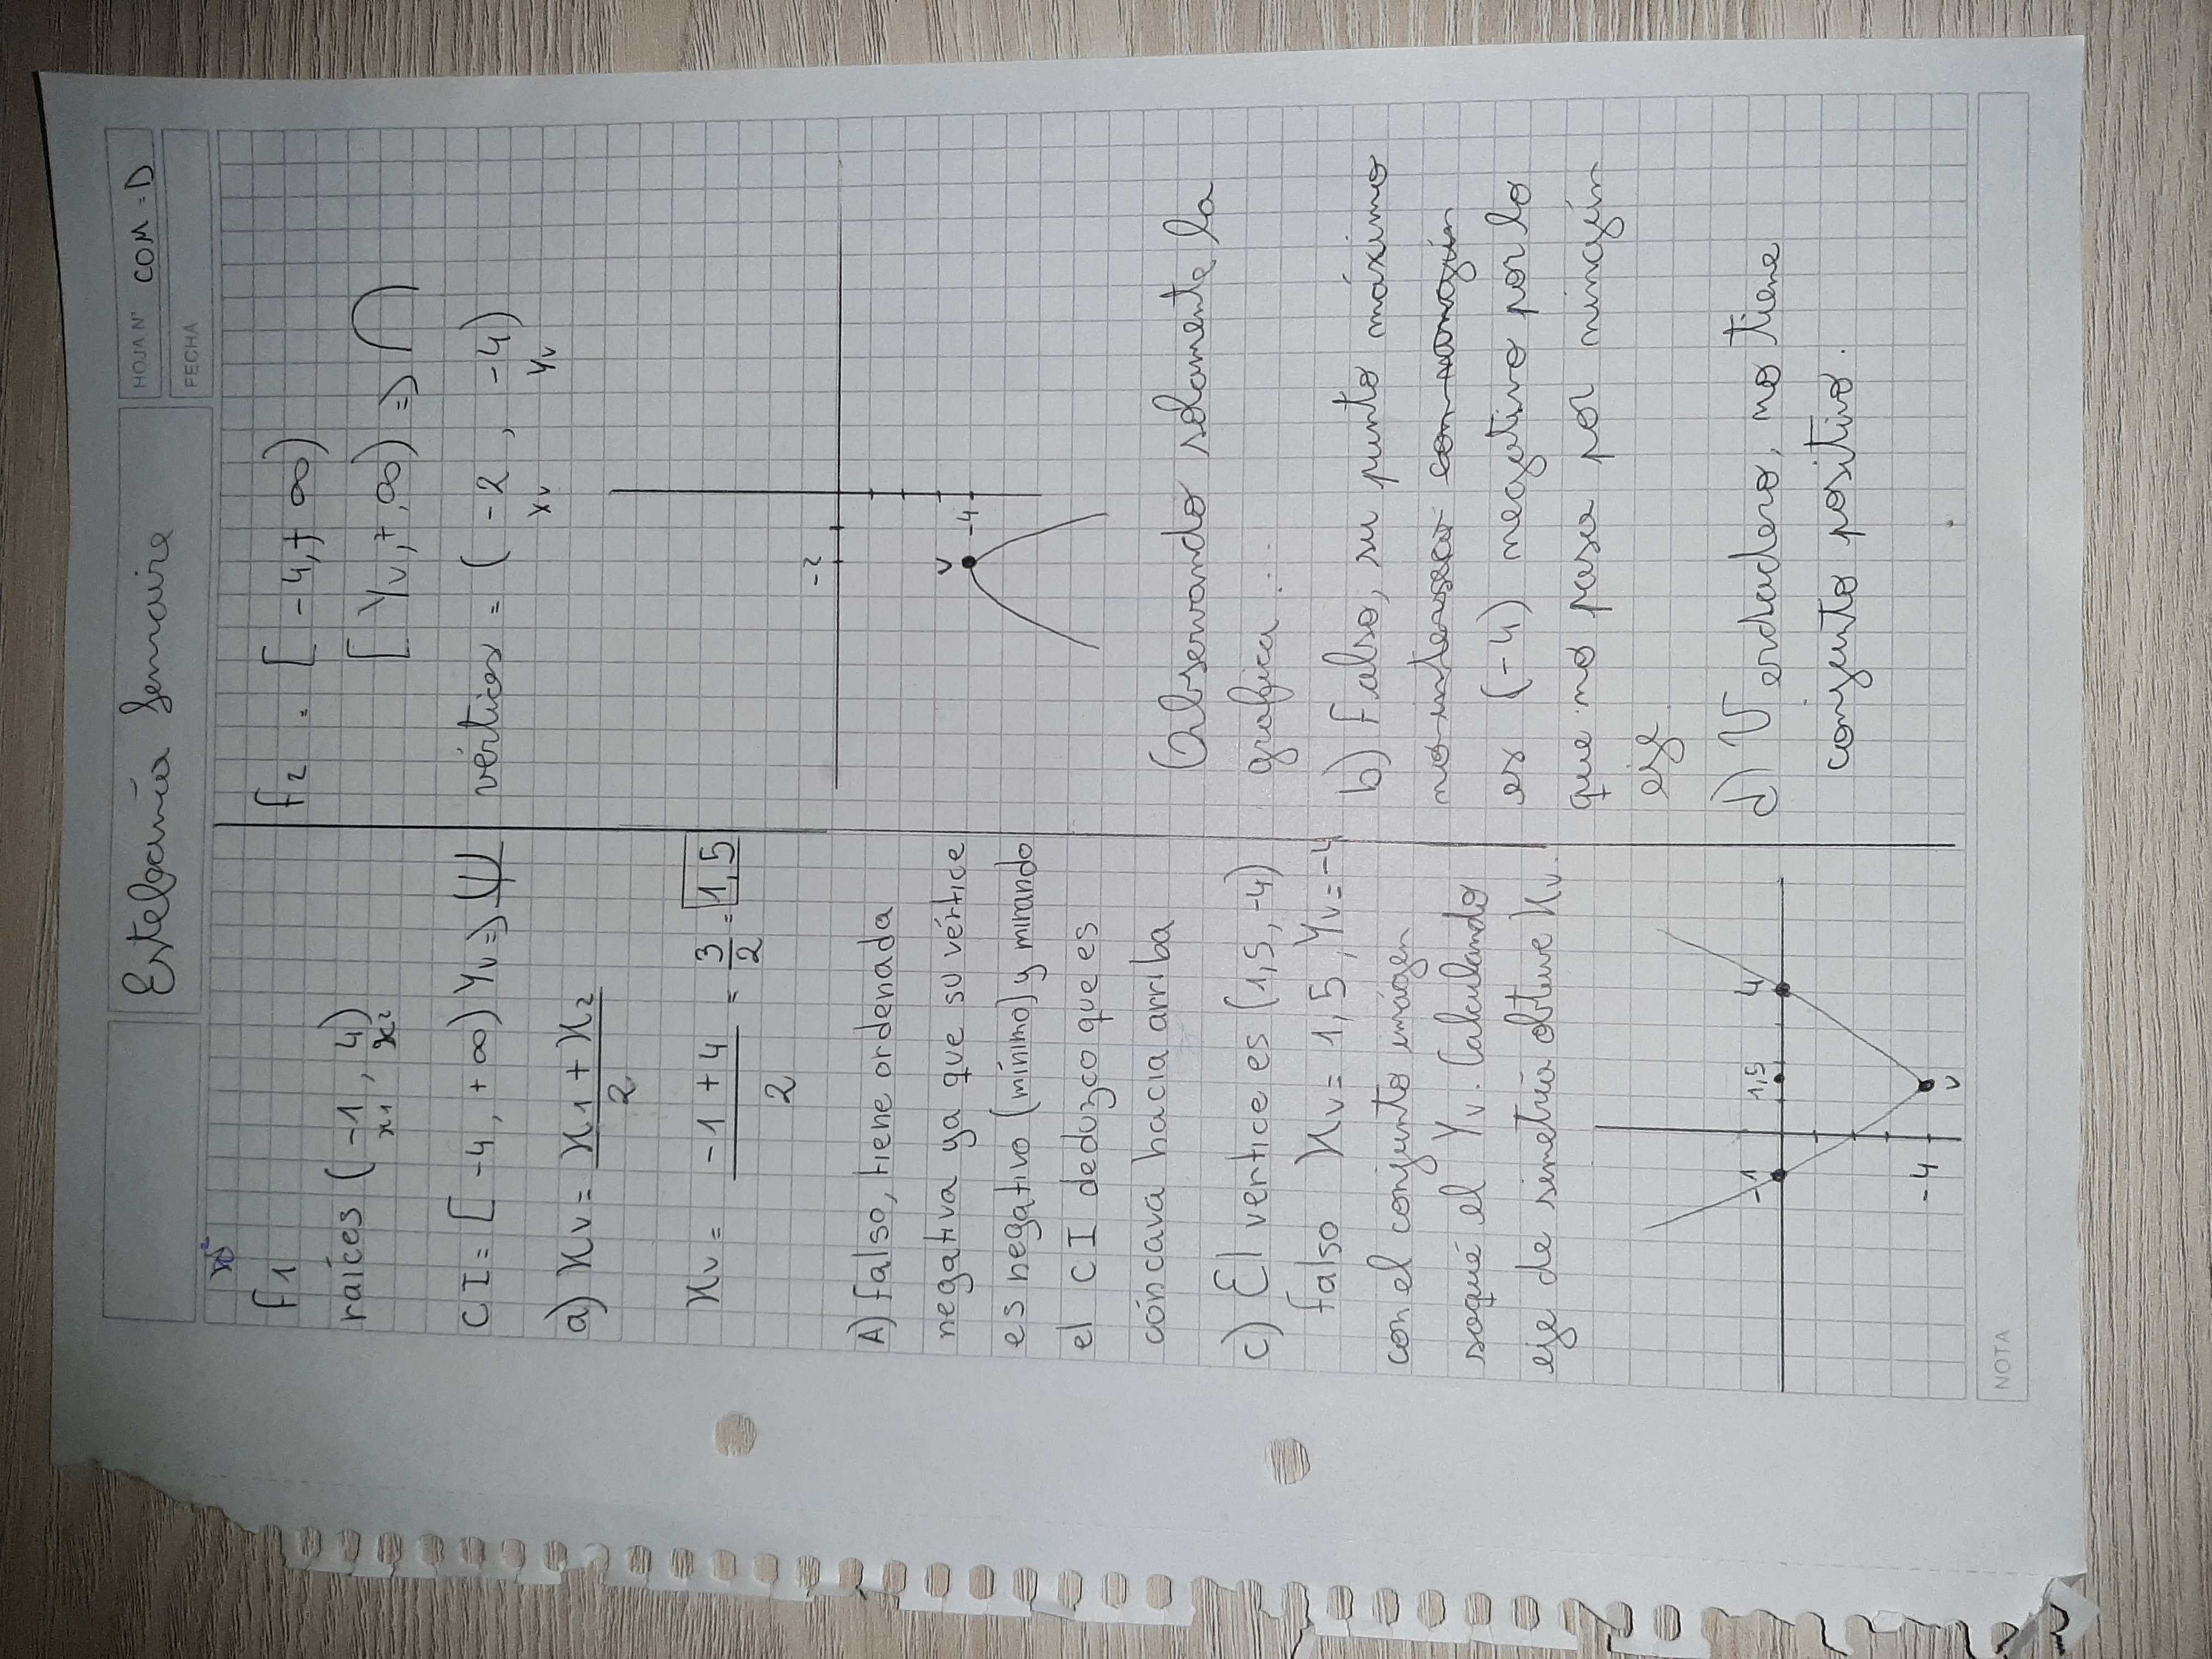 Estefanía Semaire
HOJA N° COM = D
FECHA
f1
raíces ( -1 , 4 )
x1 x2
CI = [ -4 , +∞) Yv =>
a) Xv = X1 + X2
2
Xv = -1 + 4 = 3 = 1,5
2 2
A) falso, tiene ordenada
negativa ya que su vértice
es negativo (mínimo) y mirando
el CI deduzco que es
cóncava hacia arriba
c) El vertice es (1,5, -4)
falso Xv = 1,5, Yv = -4
con el conjunto imágen
saqué el Yv. Calculando
eje de simetría obtuve Xv.
-1 1,5 4
-4
v
f2 = [ -4, + ∞)
[ Yv, +, ∞) =>
vértices = ( -2 , -4 )
Xv Yv
-2
v
-4
Observando solamente la
grafica ...
b) Falso, su punto máximo
no interseca con
es (-4) negativo por lo
que no pasa por ningún
eje.
d) Verdadero, no tiene
conjunto positivo.
NOTA